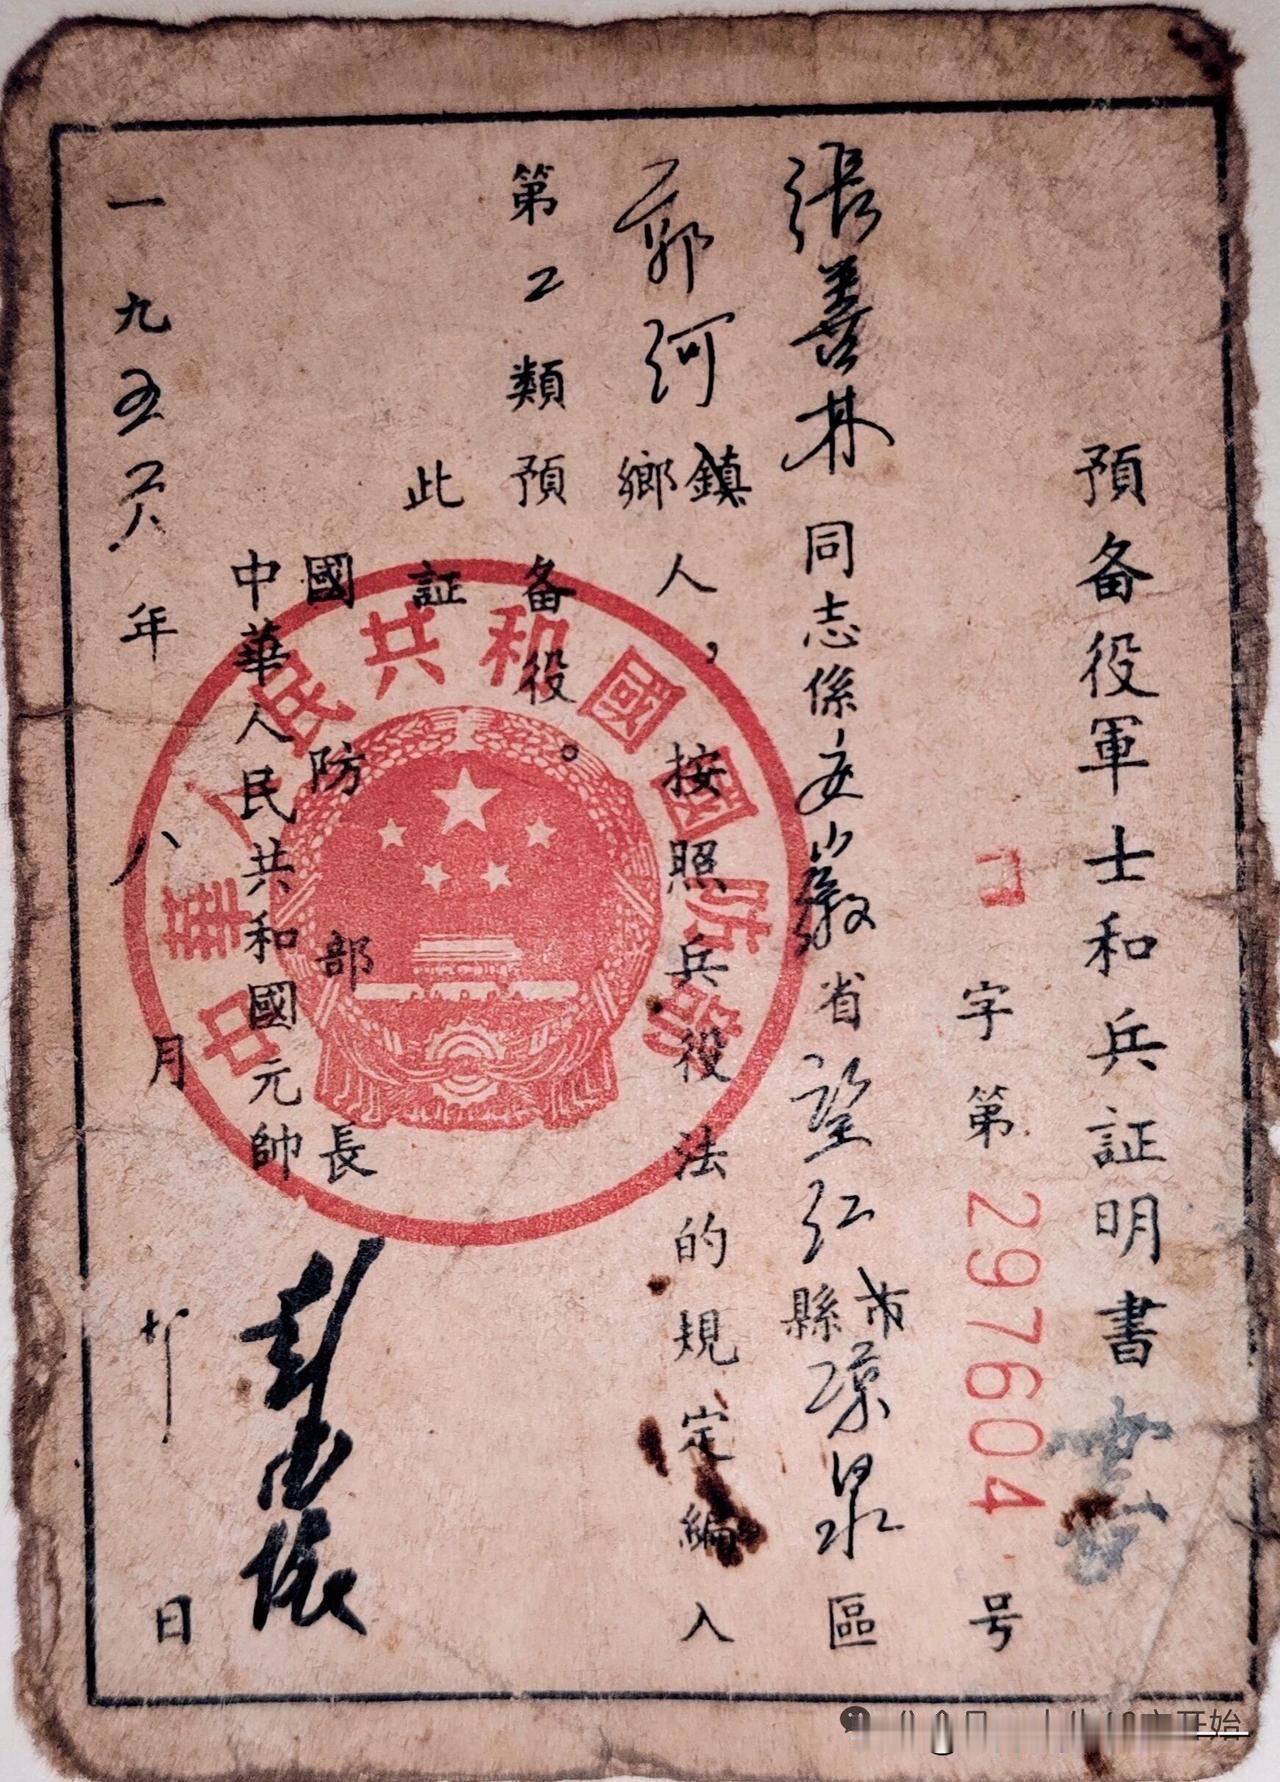 預备役軍士和兵証明書
字第297604号
張善林同志係安徽省望江縣市凉泉區
郭河鄉鎮人，按照兵役法的規定編入
第2類預备役。
此証
國防部長
中華人民共和國元帥 彭德懷
一九五六年八月廿日
中華人民共和國國防部